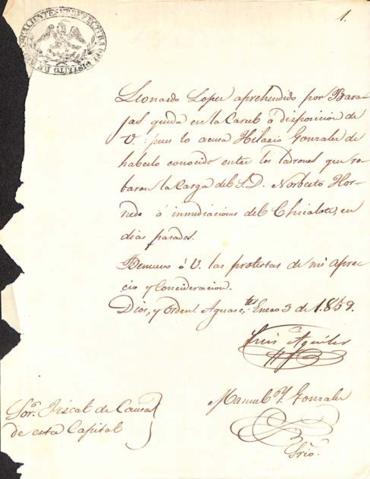 1.
Leonardo Lopez aprehendido por Bara-
jas queda en la Carcel á disposicion de
V. pues lo acusa Hilario Gonzales de
haberlo conocido entre los ladrones que ro-
baron la Carga del S. D. Norberto Hor-
nedo á inmediaciones del Chicalote, en
dias pasados.
Renuevo á V. las protestas de mi apre-
cio y consideracion.
Dios, y Orden! Aguasc.tes Enero 3 de 1859.
Luis Aguilar
Manuel Y. Gonzalez
Srio.
Sor. Fiscal de Causas
de esta Capital